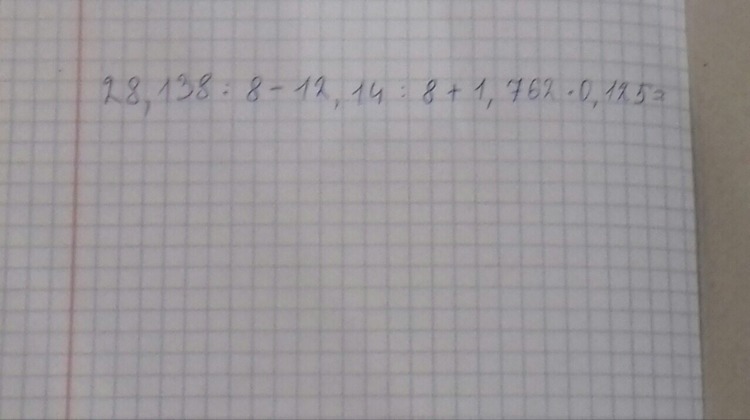 28,138 : 8 - 12,14 : 8 + 1,762 · 0,125 =